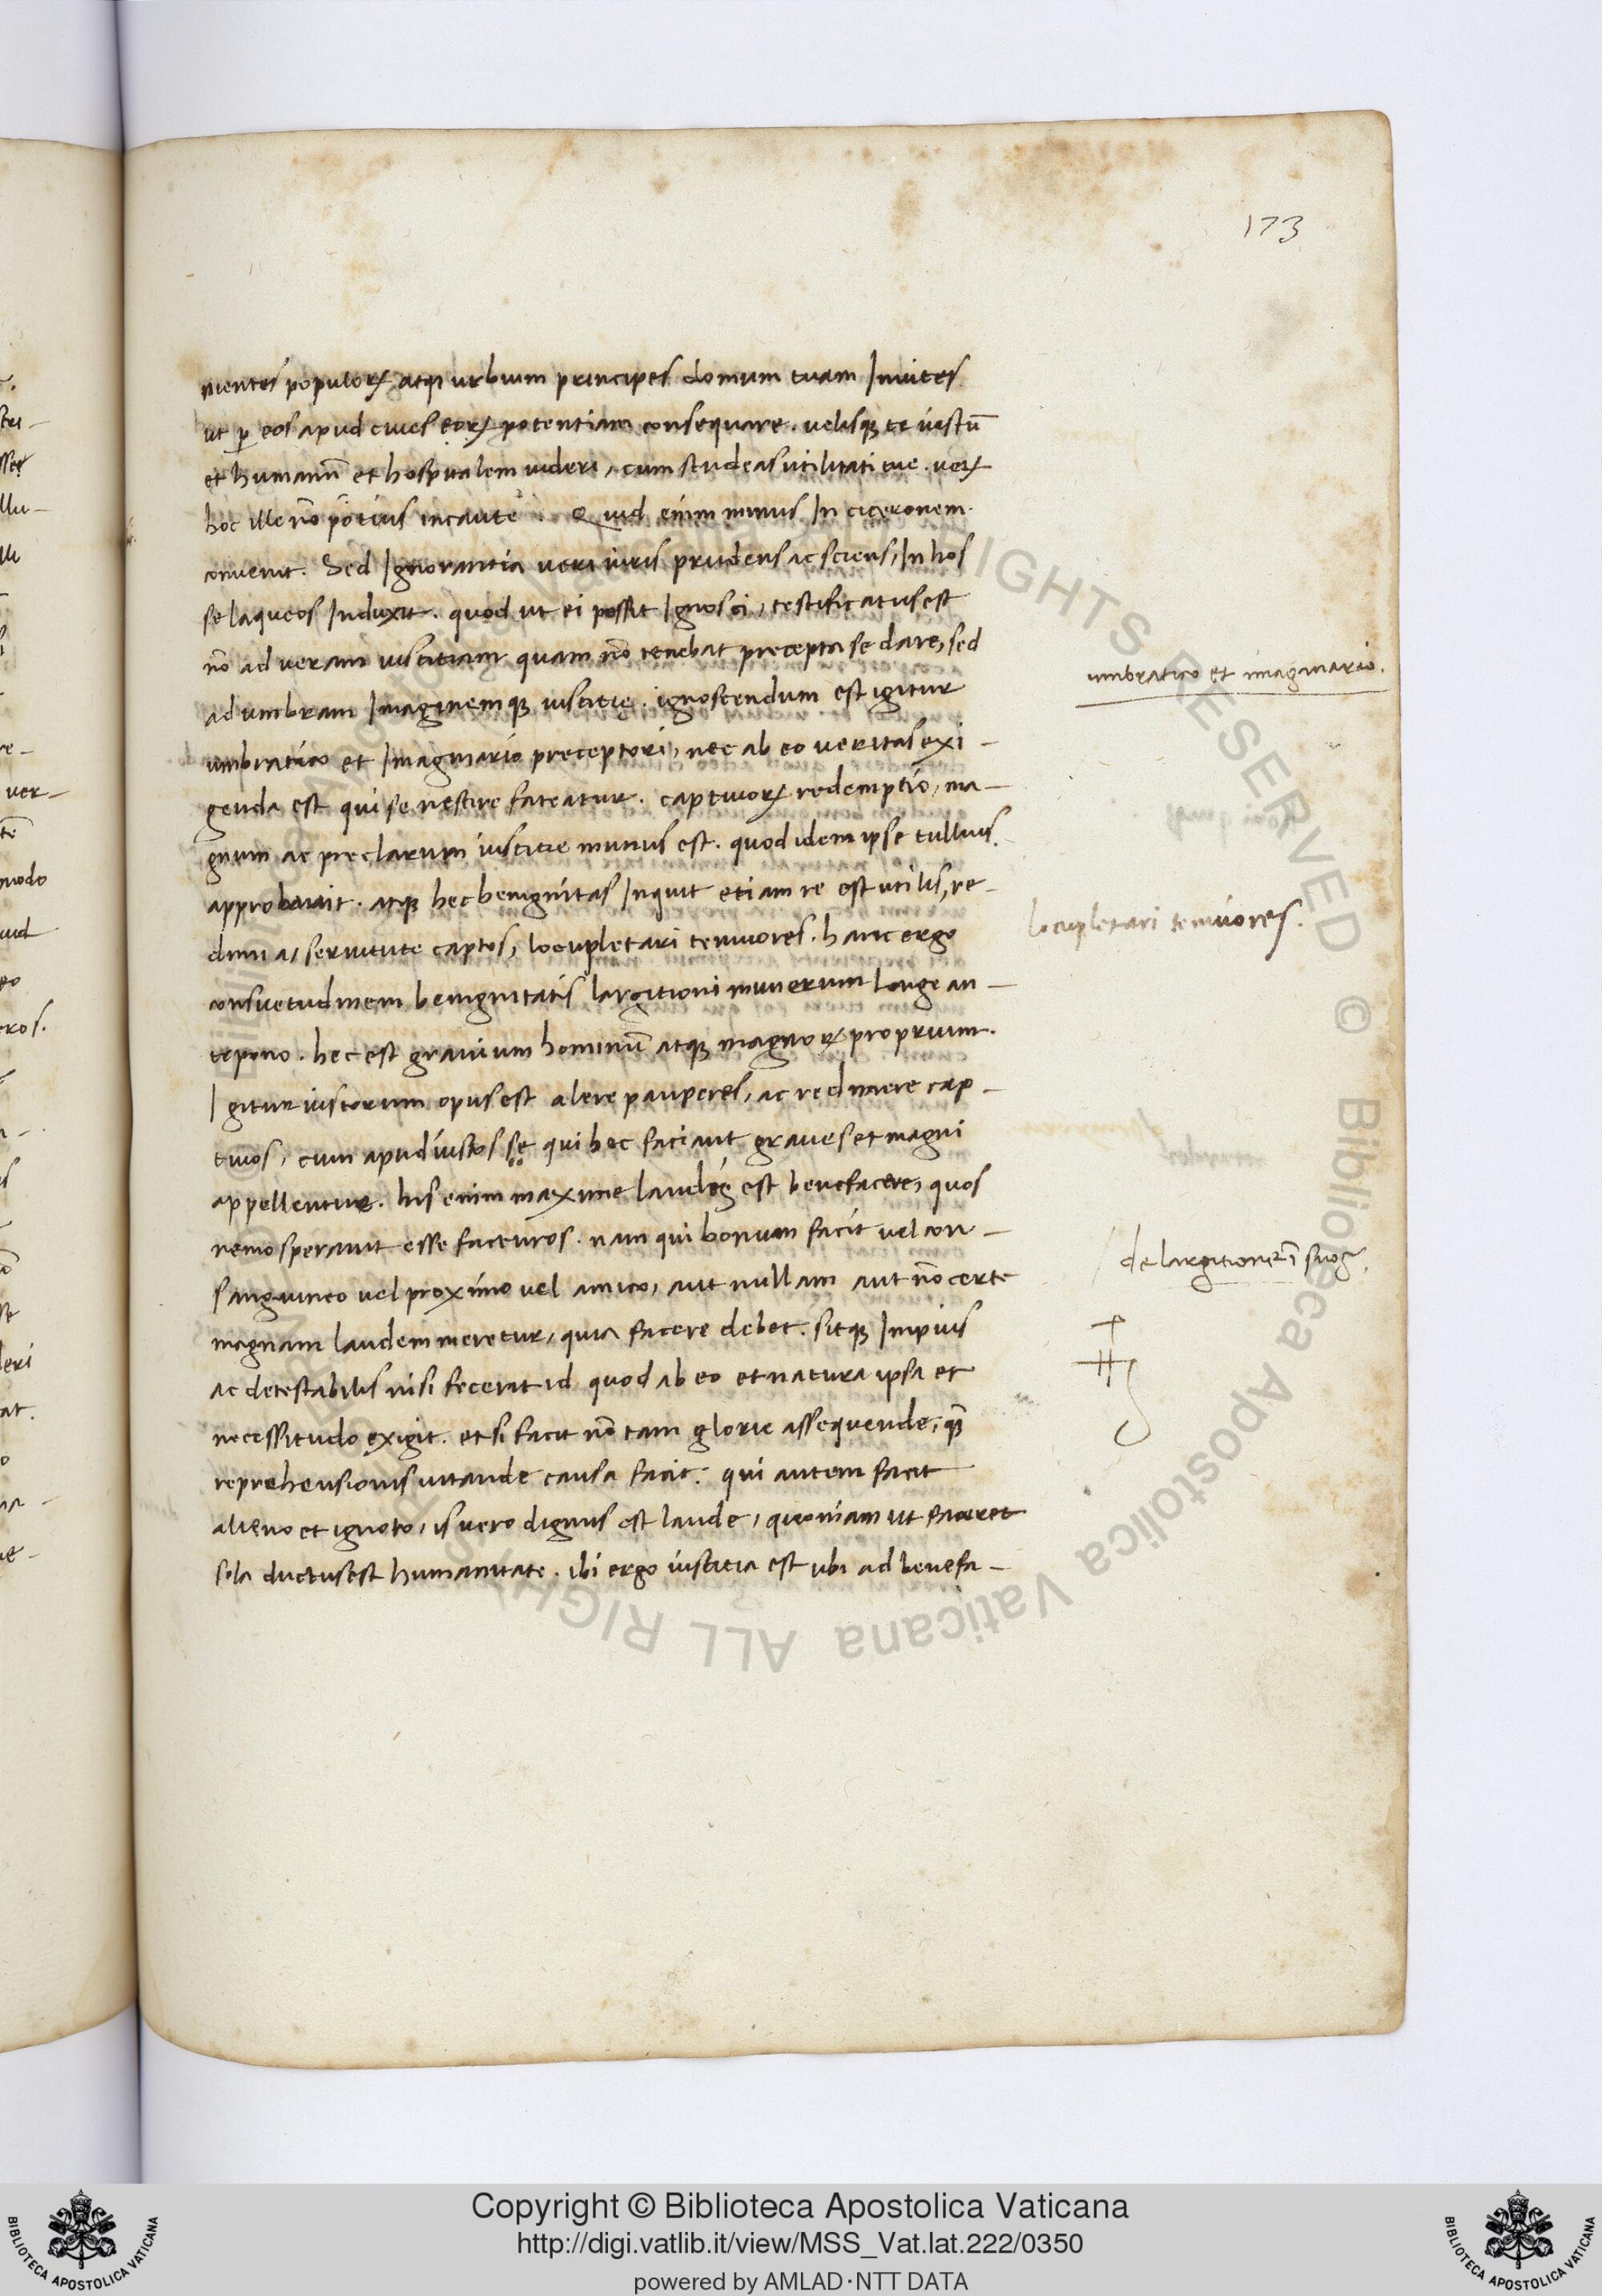 173
nientes populoꝝ atqꝫ urbium principes domum tuam Inuites
ut ꝑ eos apud ciues eoꝝ potentiam consequare. uelisqꝫ te iustū
et humanū et hospitalem uideri, cum studeas utilitati tue. ueꝝ
hoc ille nō potius incaute. Quid enim minus In ciceronem.
conuenit. Sed Ignorantia ueri iuris prudens ac sciens, In hos
se laqueos Induxit. quod ut ei possit Ignosci, testificatus est
nō ad ueram iustitiam quam nō tenebat precepta se dare, sed
ad umbram Imaginemqꝫ iustitię. ignoscendum est igitur
umbratico et Imaginario preceptori, nec ab eo ueritas exi-
genda est qui se nescire fateatur. captiuoꝝ redemptio, ma-
gnum ac preclarum iustitie munus est. quod idem ipse tullius.
approbauit. atqꝫ hec benignitas Inquit etiam re est utilis, re-
dimi a, seruitute captos, locupletari tenuiores. hanc ergo
consuetudinem benignitatis largitioni munerum longe an-
tepono. hec est grauium hominū atqꝫ magnoꝝ proprium.
Igitur iustorum opus est alere pauperes, ac redimere cap-
tiuos, cum apud iustos se qui hec faciant graues et magni
appellentur. his enim maxime laudi est benefacere, quos
nemo sperauit esse facturos. nam qui bonum facit uel con-
sanguineo uel proximo uel amico, aut nullam aut nō certe
magnam laudem meretur, quia facere debet. sitqꝫ Impius
ac detestabilis nisi fecerit id quod ab eo et natura ipsa et
necessitudo exigit. et si facit nō tam glorie assequende, qꝫ̄
reprehensionis uitande causa facit. qui autem facit
alieno et ignoto, is uero dignus est laude, quoniam ut faceret
sola ductus est humanitate. ibi ergo iustitia est ubi ad benefa-
umbratico et imaginario.
locupletari tenuiores.
de largitione
ver-
modo
uid
eo
eros.
leri
at.
Copyright © Biblioteca Apostolica Vaticana
http://digi.vatlib.it/view/MSS_Vat.lat.222/0350
powered by AMLAD·NTT DATA
BIBLIOTECA APOSTOLICA VATICANA
BIBLIOTECA APOSTOLICA VATICANA
© Biblioteca Apostolica Vaticana ALL RIGHTS RESERVED